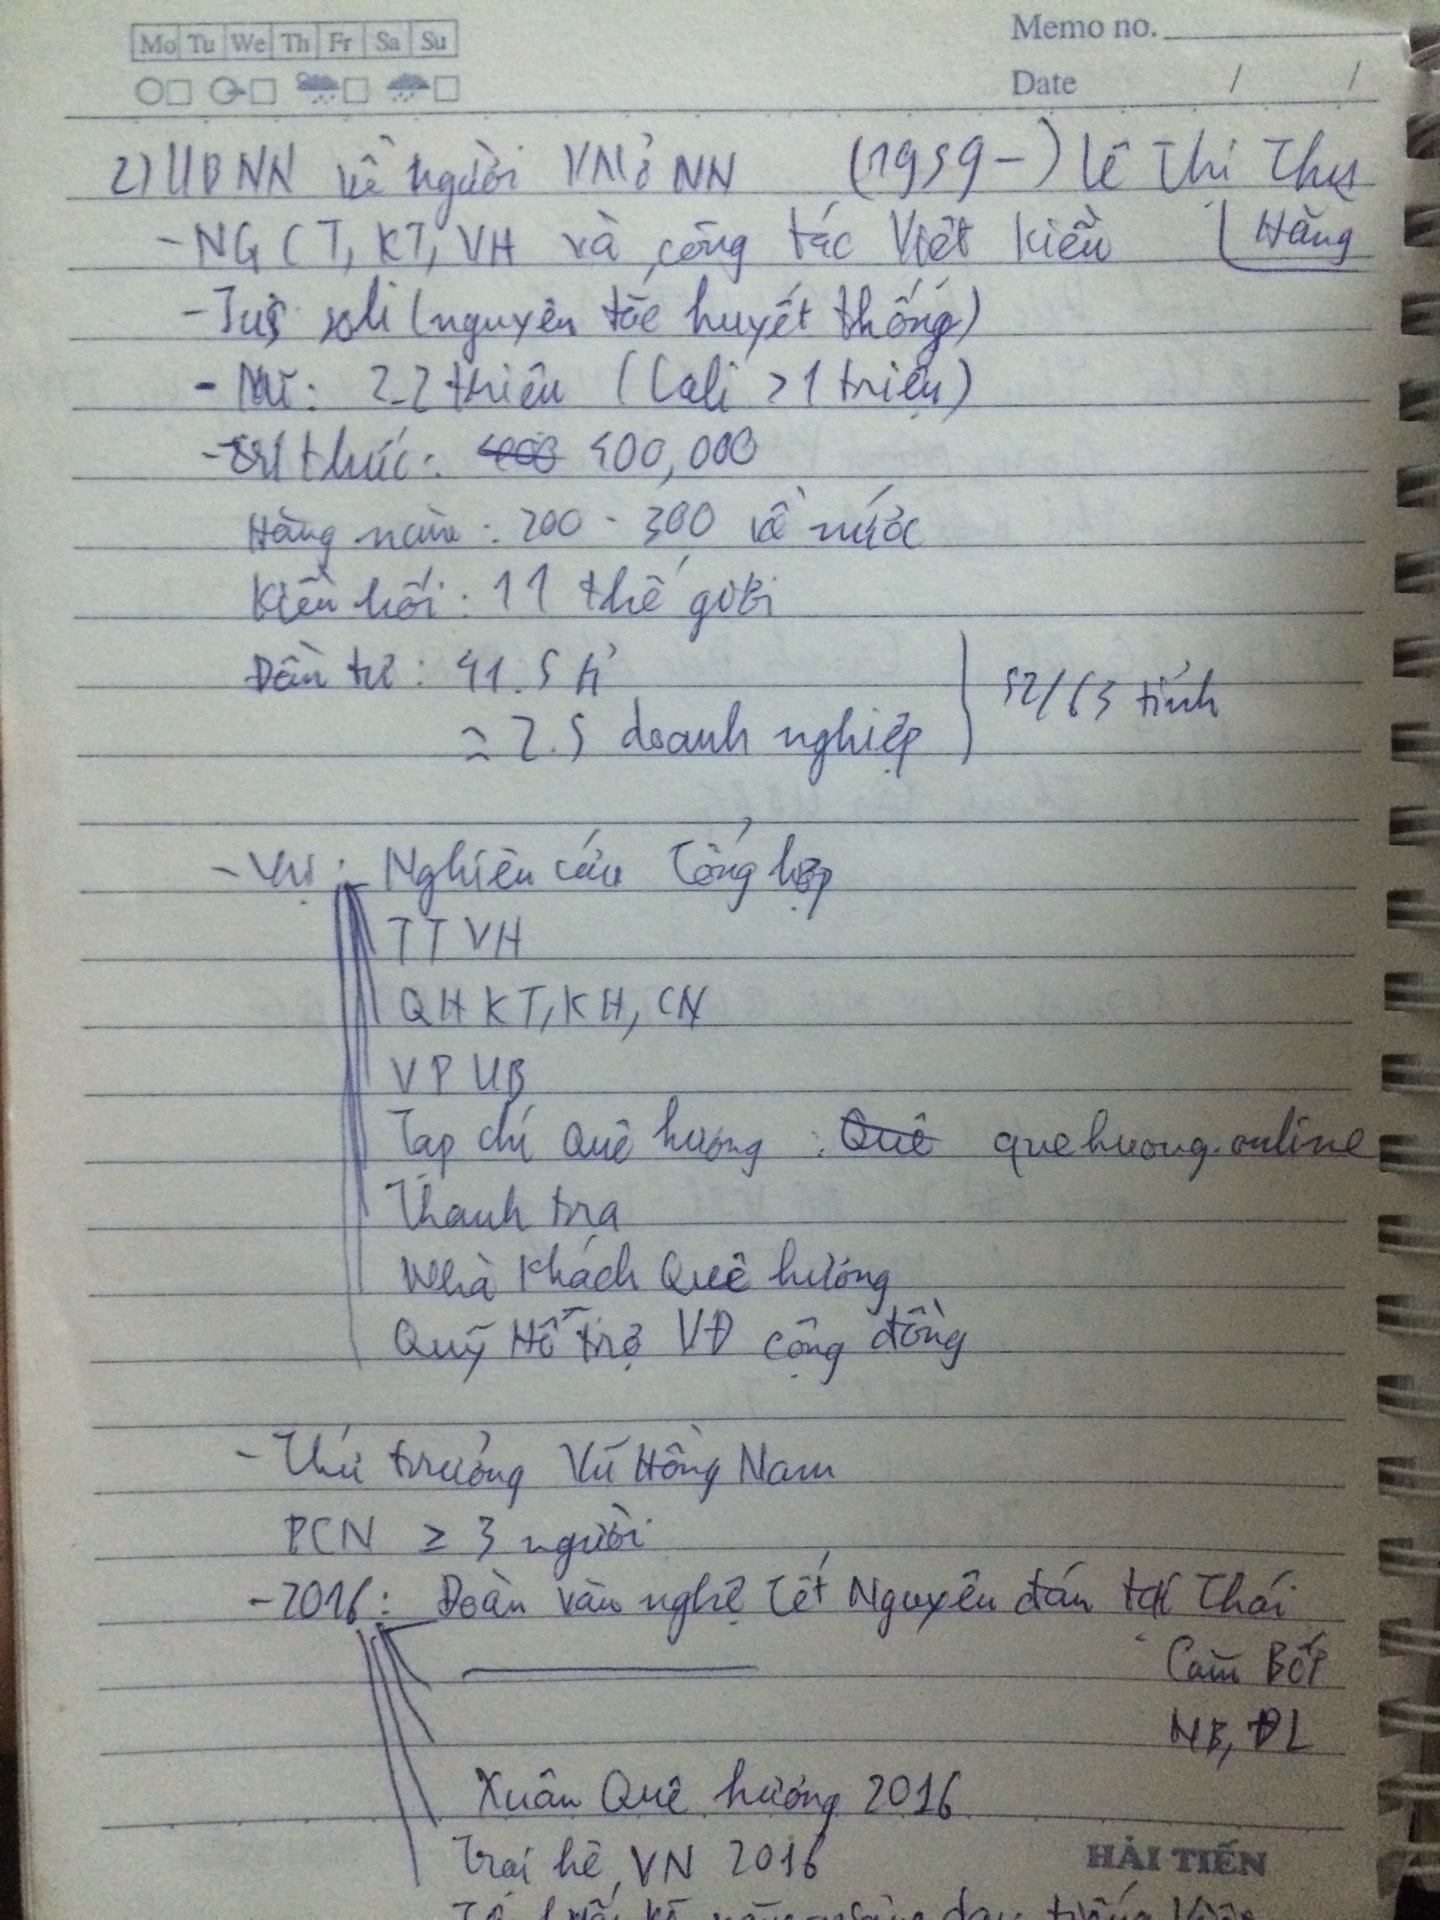 Mo Tu We Th Fr Sa Su
Memo no.
Date / /
2) UBNN về người VN ở NN (1959-) Lê Thị Thu Hằng
- NG CT, KT, VH và công tác Việt kiều
- Jus soli (nguyên tắc huyết thống)
- Mĩ: 2.2 triệu (Cali > 1 triệu)
- Trí thức: 400,000
Hàng năm: 200 - 300 về nước
Kiều hối: 11 thế giới
Đầu tư: 41.5 tỉ
≈ 2.5 doanh nghiệp
52/63 tỉnh
- Vụ: Nghiên cứu Tổng hợp
TTVH
QH KT, KH, CN
VP UB
Tạp chí Quê hương: Quê quehuong.online
Thanh tra
Nhà Khách Quê hương
Quỹ Hỗ trợ VĐ cộng đồng
- Thứ trưởng Vũ Hồng Nam
PCN ≥ 3 người
- 2016: Đoàn văn nghệ Tết Nguyên đán tại Thái
Cam Bốt
NB, ĐL
Xuân Quê hương 2016
Trại hè VN 2016
HẢI TIẾN
dạy tiếng Việt